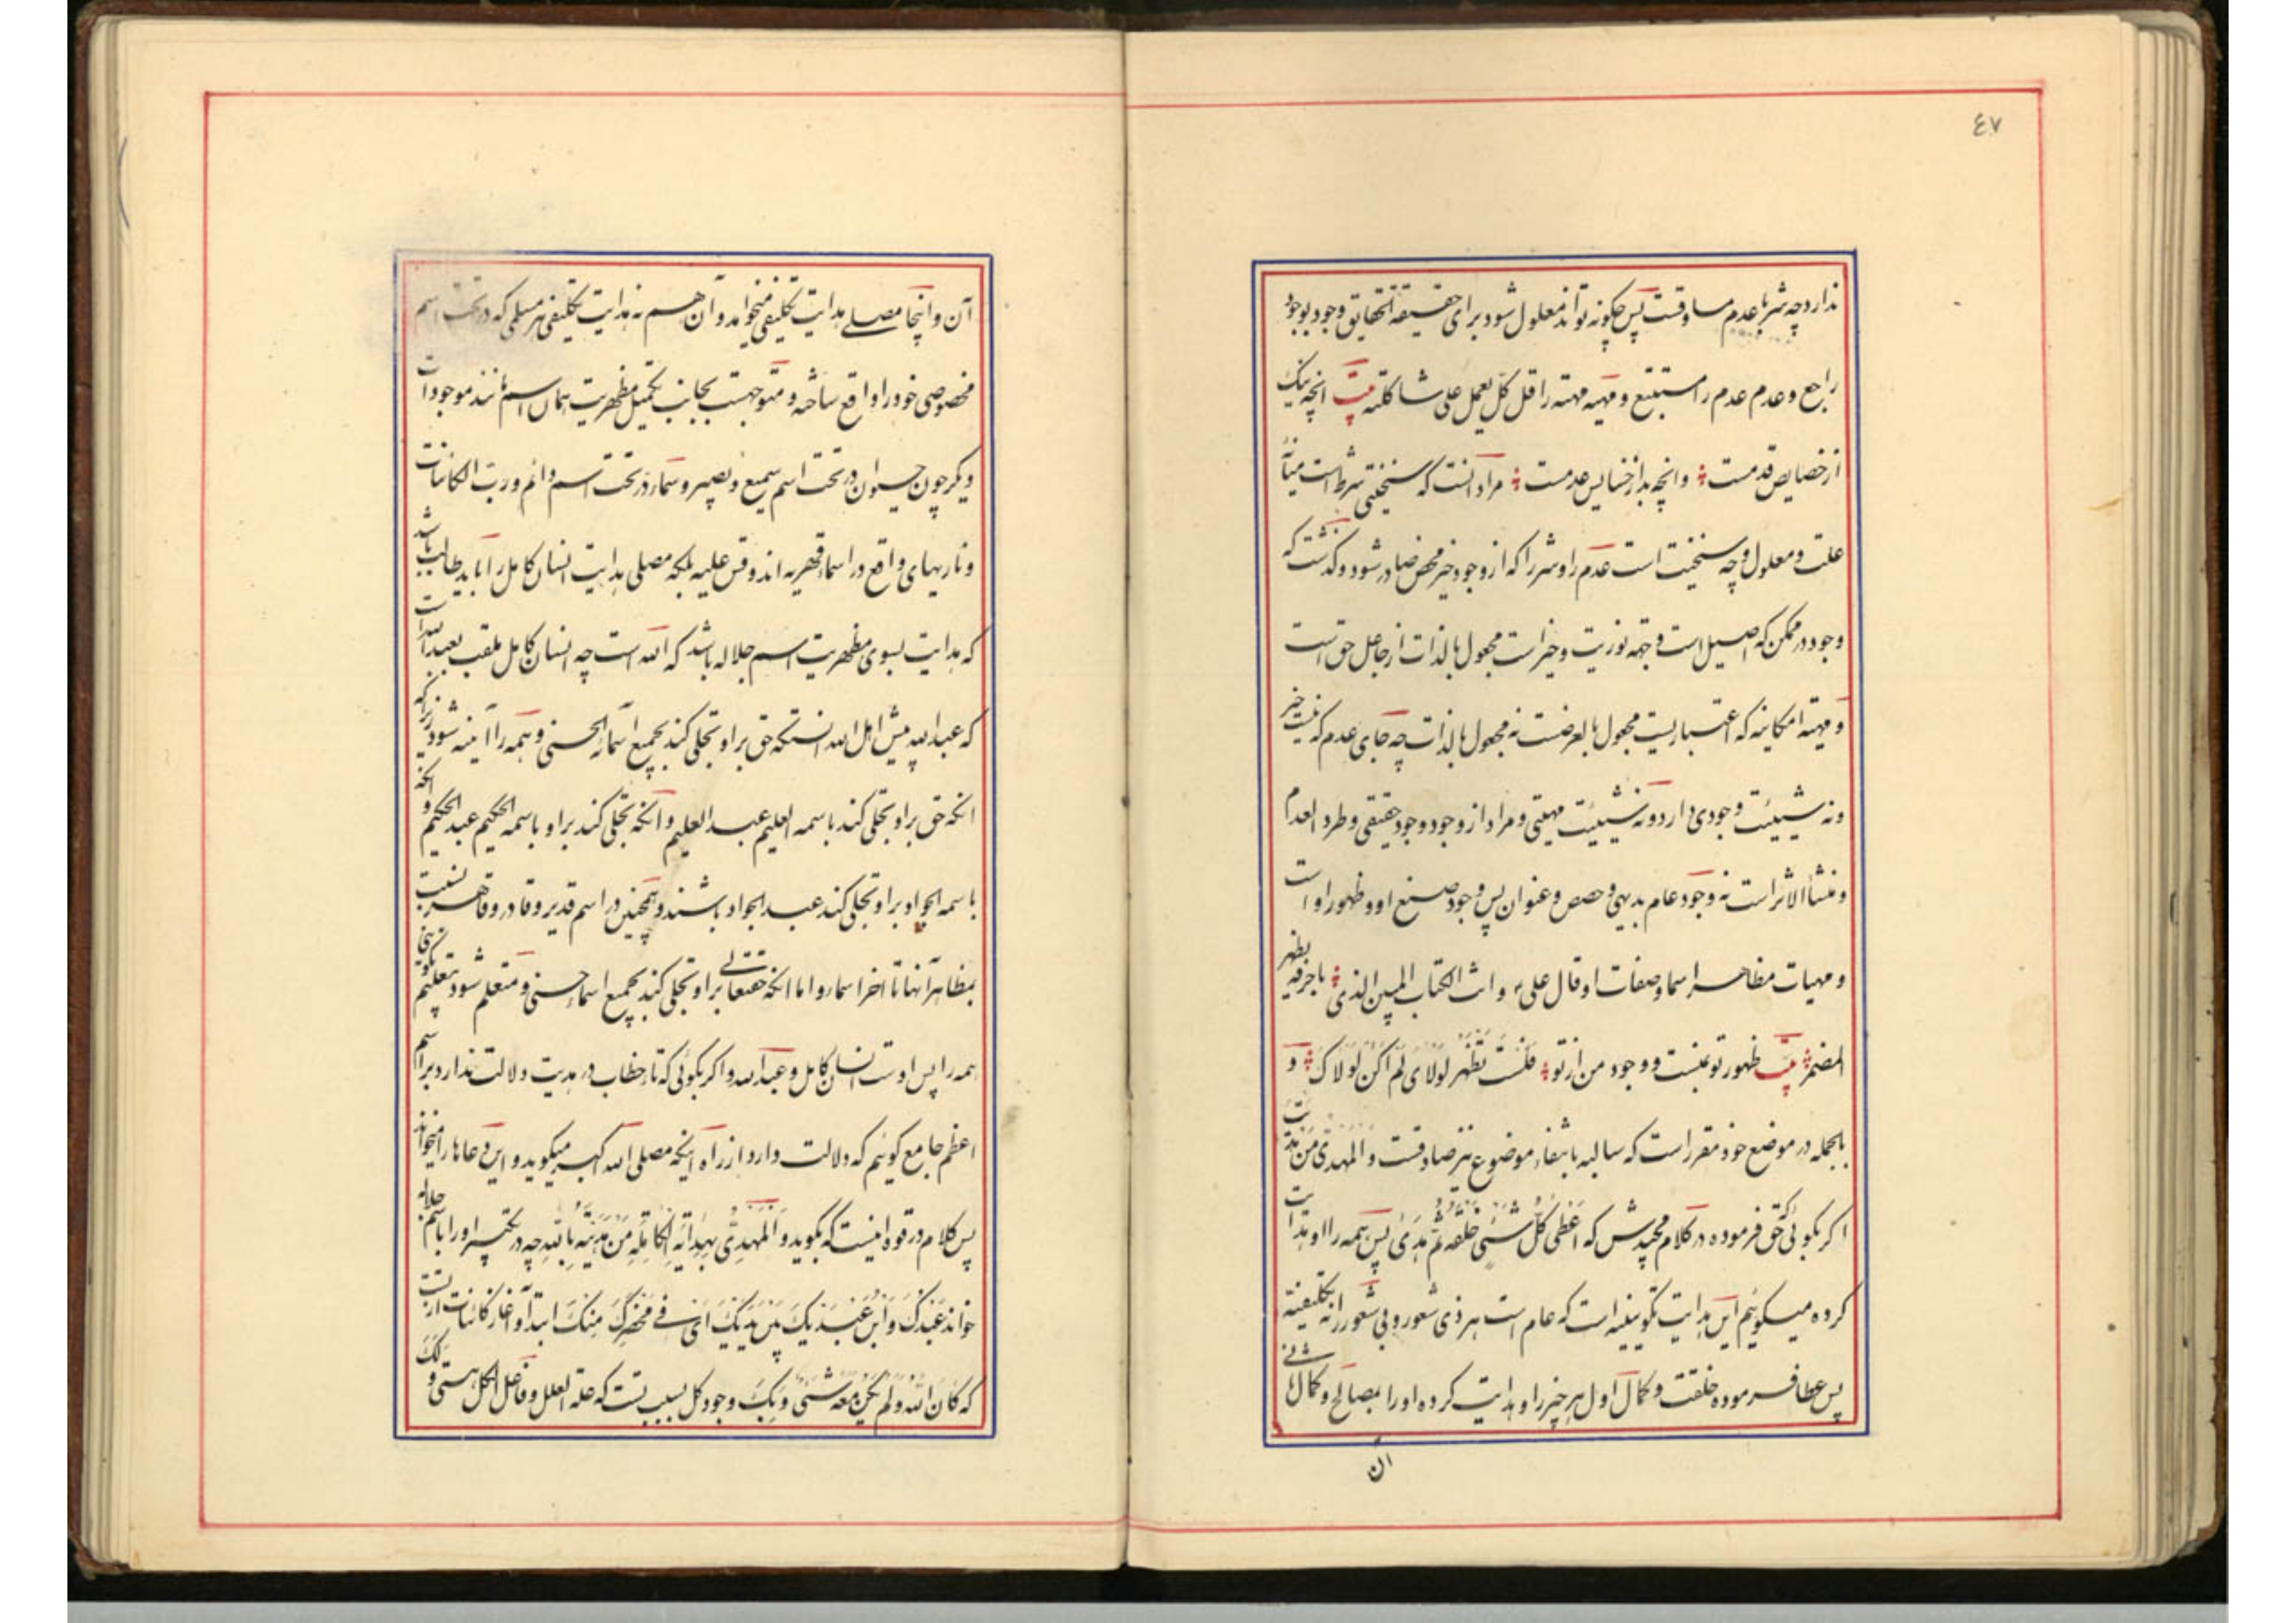 ٤٧
ندارد چه شر با عدم مساوقست پس چگونه تواند معلول شود برای حقیقة الحقایق وجود بوجود
راجع و عدم عدم را مستتبع و مهیه مهیته را قل کل یعمل علی شاکلته بیت انچه نیک
از خصایص قدمست وانچه بد از خسایس عدمست مراد آنست که سنخیتی شرط است میانهٔ
علت و معلول و چه سنخیت است عدم را و شر را که از وجود خیر محض صادر شود و گذشت که
وجود در ممکن که اصیل است و جهه نوریت و خیر است مجعول بالذات از جاعل حق است
و مهیته امکانیه که اعتباریست مجعول بالعرضست نه مجعول بالذات چه جای عدم که نیست خیر
ونه شیئیت وجودی دارد و نه شیئیت مهیتی و مراد از وجود وجود حقیقی و طرد العدم
و منشأ الاثر است نه وجود عام بدیهی و حصص و عنوان پس وجود صنع او و ظهور او است
و مهیات مظاهر اسما و صفات او قال علی ع وانت الکتاب المبین الذی باحرفه یظهر
المضمر بیت ظهور تو بمنست و وجود من از تو فلست تظهر لولای لم اکن لولاک و
بالجمله در موضع خود مقرر است که سالبه بانتفاء موضوع نیز صادقست و المهدی من هدیت
اگر بگوئی که حق فرموده در کلام مجیدش که اعطی کل شئی خلقه ثم هدی پس همه را او هدایت
کرده میگوئیم این هدایت تکوینیه است که عام است هر ذی شعور و بی شعور را نه تکلیفیته
پس عطا فرموده خلقت و کمال اول هر چیز را و هدایت کرده او را بمصالح و کمال ثانی
ان
آن واینجا مصلی هدایت تکلیفی میخواهد و آن هم نه هدایت تکلیفی هر مسلمی که در تحت اسم
مخصوصی خود را واقع ساخته و متوجهست بجانب تکمیل مظهریت همان اسم مانند موجودات
دیگر چون حیوان در تحت اسم سمیع و بصیر و سما در تحت اسم دائم و رب الکائنات
و ناریهای واقع در اسماء قهریه اند وقس علیه بلکه مصلی هدایت انسان کامل را باید طالب باشد
که هدایت بسوی مظهریت اسم جلاله باشد که الله است چه انسان کامل ملقب بعبدالله است
که عبدالله پیش اهل الله انستکه حق بر او تجلی کند بجمیع اسمائه الحسنی و همه را آینه شود زیراکه
انکه حق بر او تجلی کند باسمه العلیم عبد العلیم و انکه تجلی کند بر او باسمه الحکیم عبد الحکیم و انکه
باسمه الجواد بر او تجلی کند عبد الجواد باشند و همچنین در اسم قدیر و قادر و قاهر نسبت
بمظاهر آنها تا اخر اسماء و اما انکه حقتعالی بر او تجلی کند بجمیع اسماء حسنی و متعلم شود بتعلیم تکوینی
همه را پس اوست انسان کامل و عبدالله و اگر بگوئی که تاء خطاب در هدیت دلالت ندارد بر اسم
اعظم جامع گوئیم که دلالت دارد از راه اینکه مصلی الله اکبر میگوید و این دعاها را میخواند
پس کلام در قوه اینست که بگوید و المهدی بهدایته الکامله من هدیته بالله چه در تکبیر او را باسم جلاله
خواند عبدک و ابن عبدیک بین یدیک ای فی محضرک منک ابتدا و آغاز کائنات از تست
که کان الله ولم یکن معه شئی و بک وجود کل بسبب تست که علة العلل و فاعل الکل هستی و لک